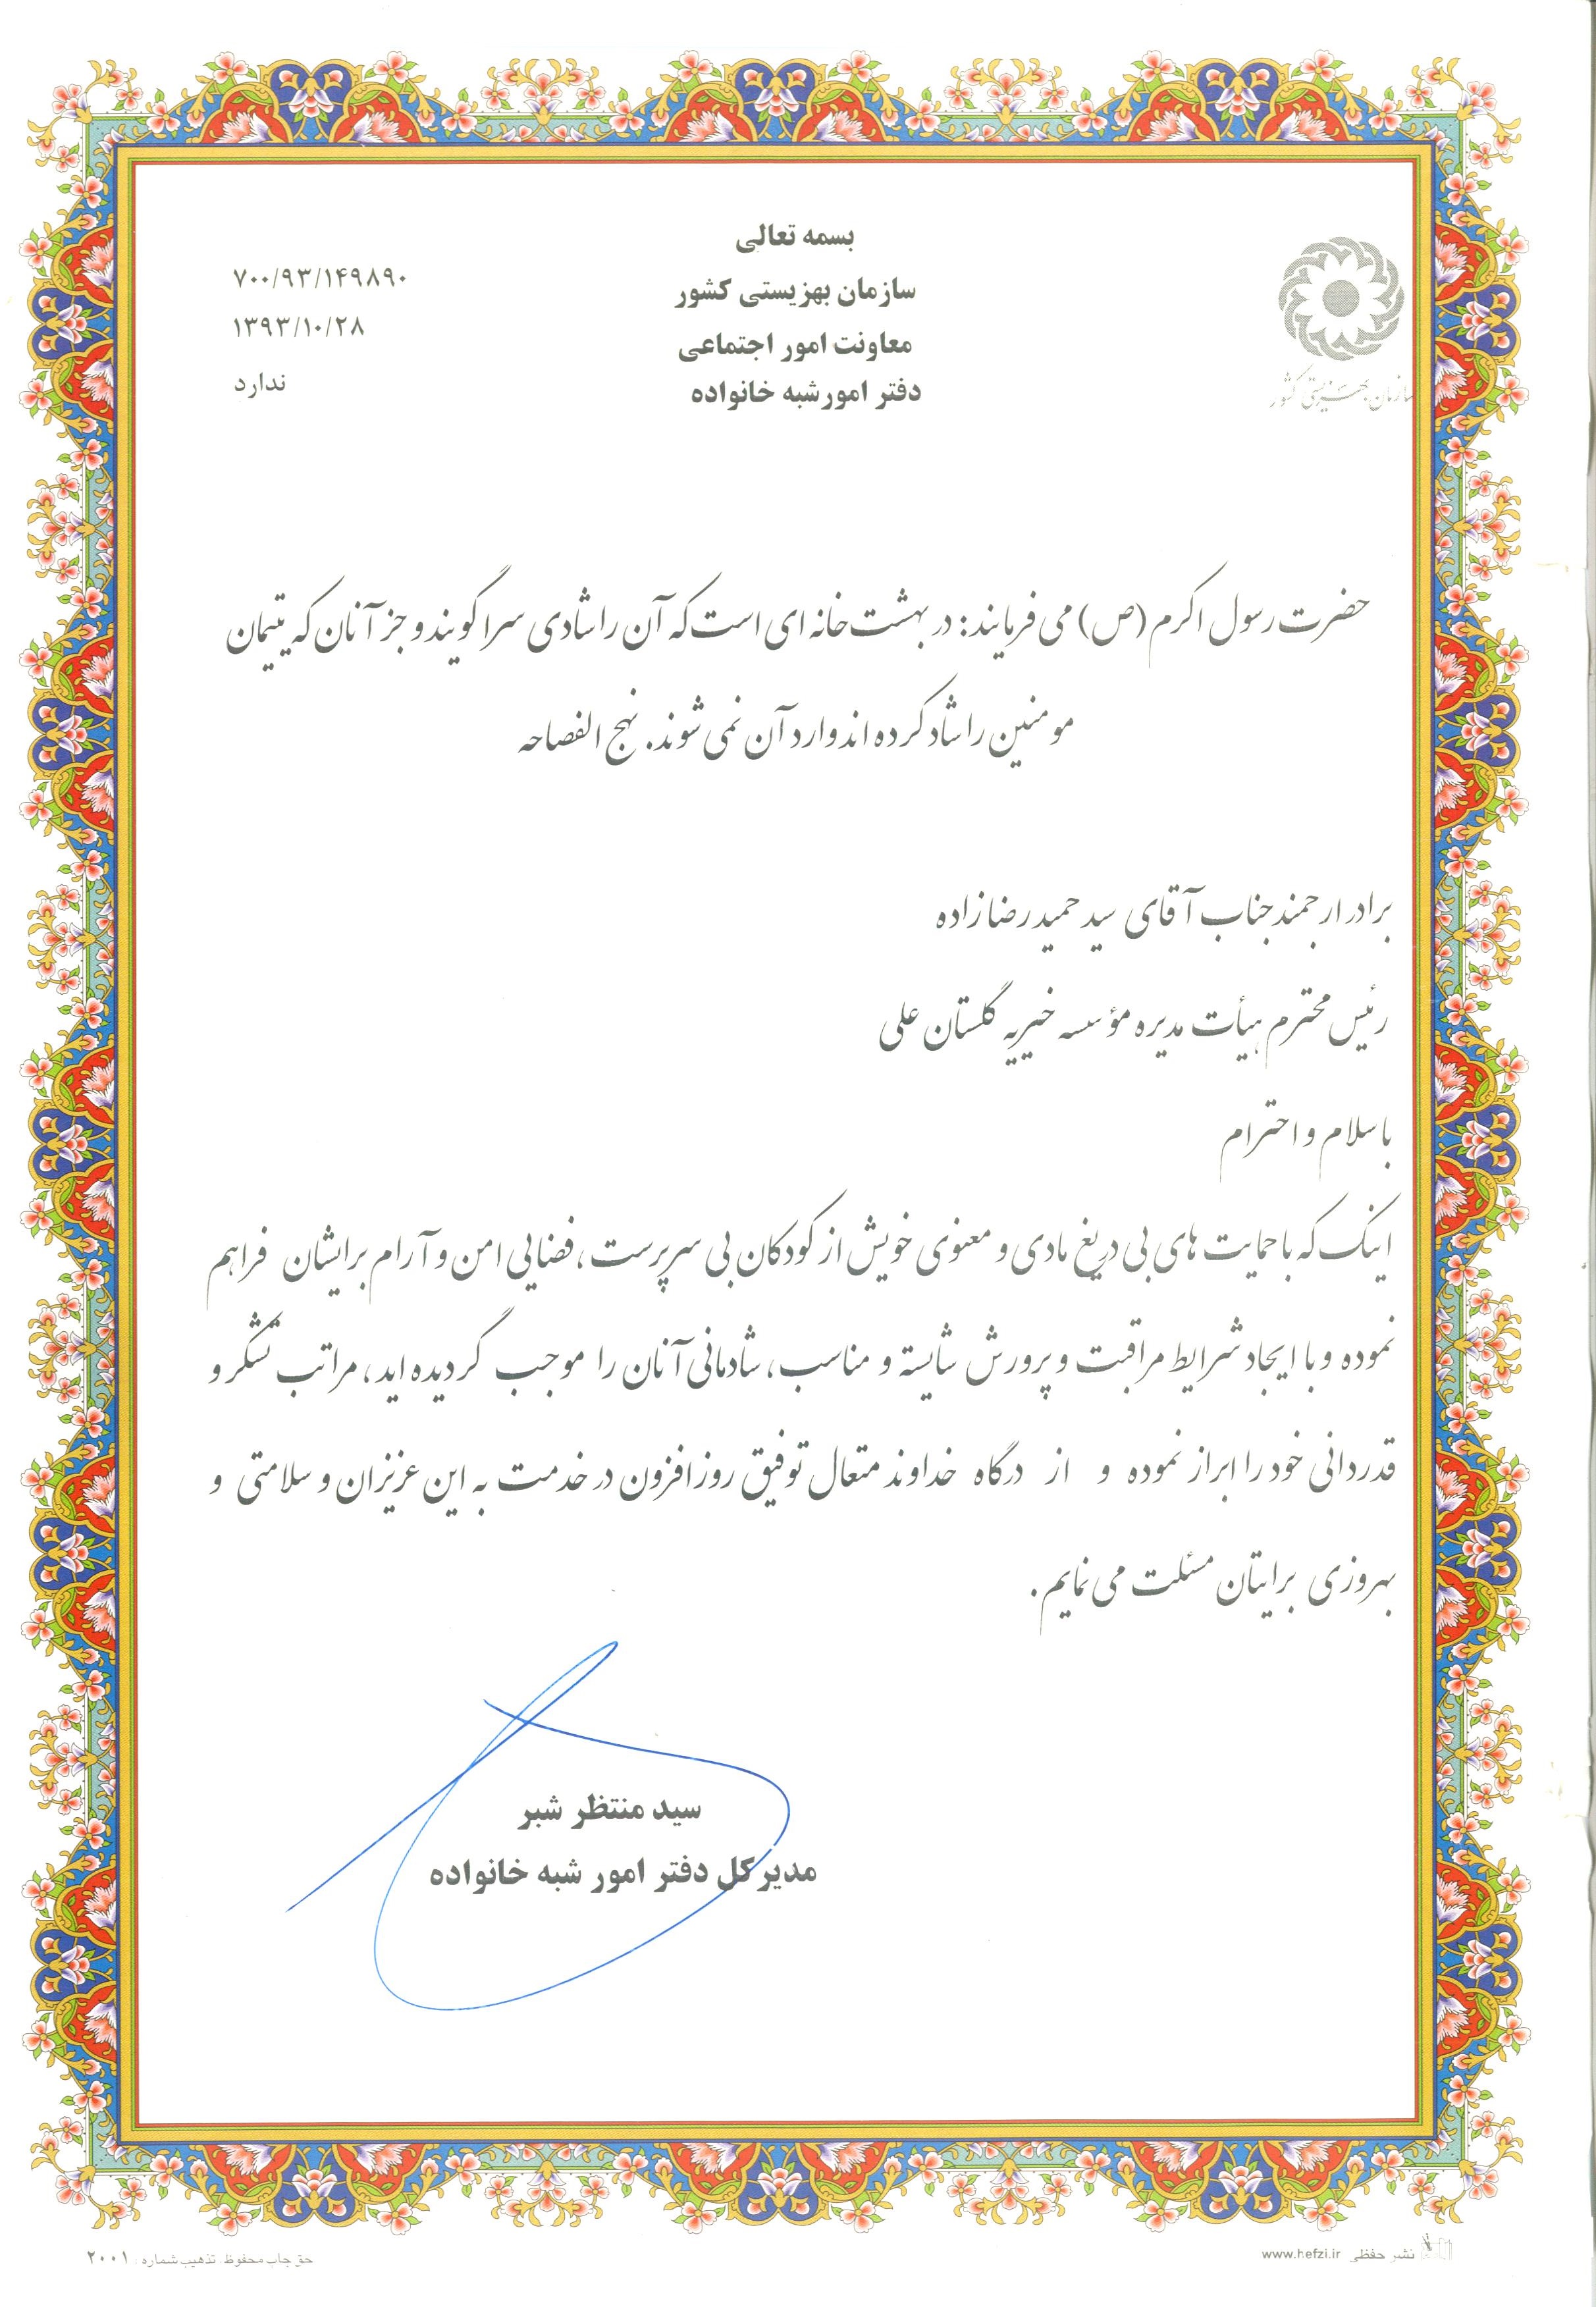 بسمه تعالی
سازمان بهزیستی کشور
معاونت امور اجتماعی
دفتر امورشبه خانواده
۷۰۰/۹۳/۱۴۹۸۹۰
۱۳۹۳/۱۰/۲۸
ندارد
سازمان بهزیستی کشور
حضرت رسول اکرم (ص) می فرمایند: در بهشت خانه ای است که آن را شادی سرا گویند و جز آنان که یتیمان
مومنین را شاد کرده اند وارد آن نمی شوند. نهج الفصاحه
برادر ارجمند جناب آقای سید حمید رضازاده
رئیس محترم هیأت مدیره مؤسسه خیریه گلستان علی
با سلام و احترام
اینک که با حمایت های بی دریغ مادی و معنوی خویش از کودکان بی سرپرست، فضایی امن و آرام برایشان فراهم
نموده و با ایجاد شرایط مراقبت و پرورش شایسته و مناسب، شادمانی آنان را موجب گردیده اید، مراتب تشکر و
قدردانی خود را ابراز نموده و از درگاه خداوند متعال توفیق روزافزون در خدمت به این عزیزان و سلامتی و
بهروزی برایتان مسئلت می نمایم.
سید منتظر شبر
مدیر کل دفتر امور شبه خانواده
نشر حفظی www.hefzi.ir
حق چاپ محفوظ. تذهیب شماره : ۲۰۰۱